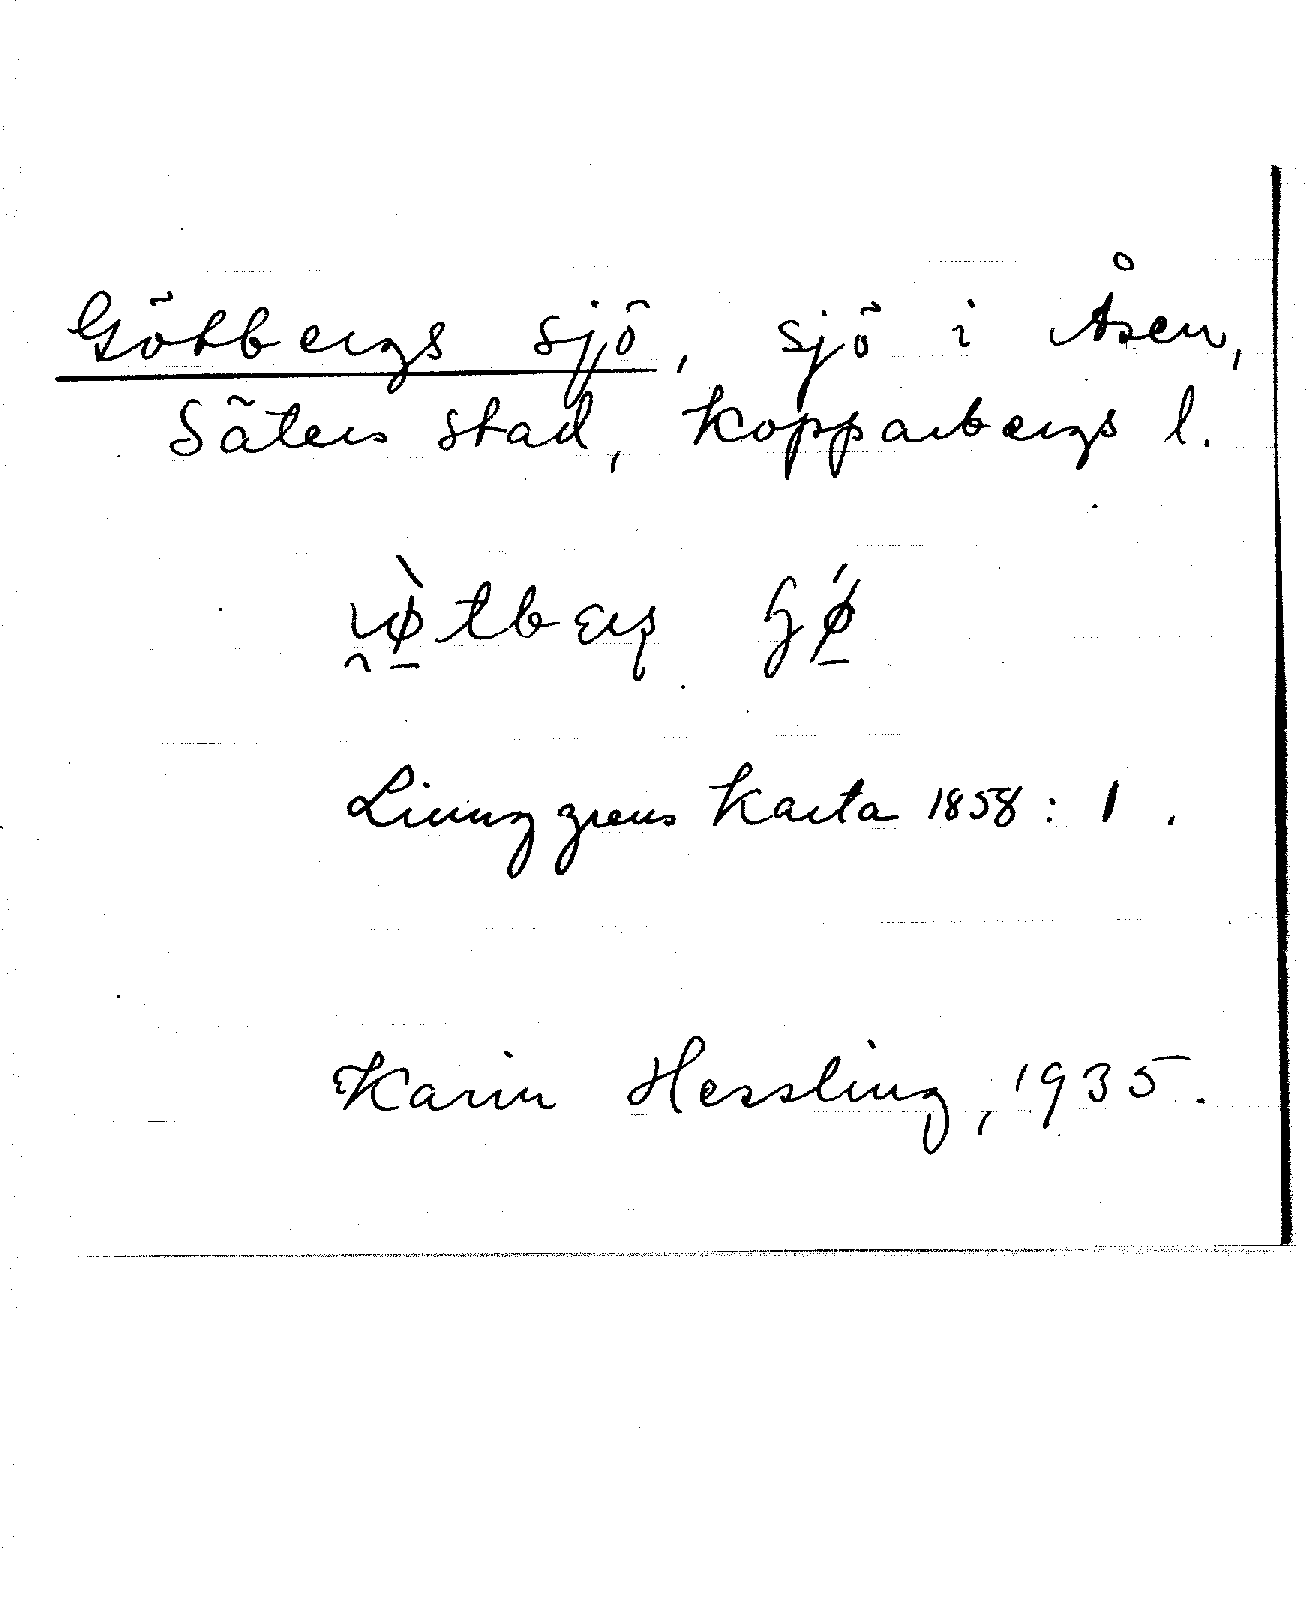 Götbergs sjö, sjö i Åsen,
Säters stad, Kopparbergs l.
Ljunggrens Karta 1858: 1.
Karin Hessling, 1935.